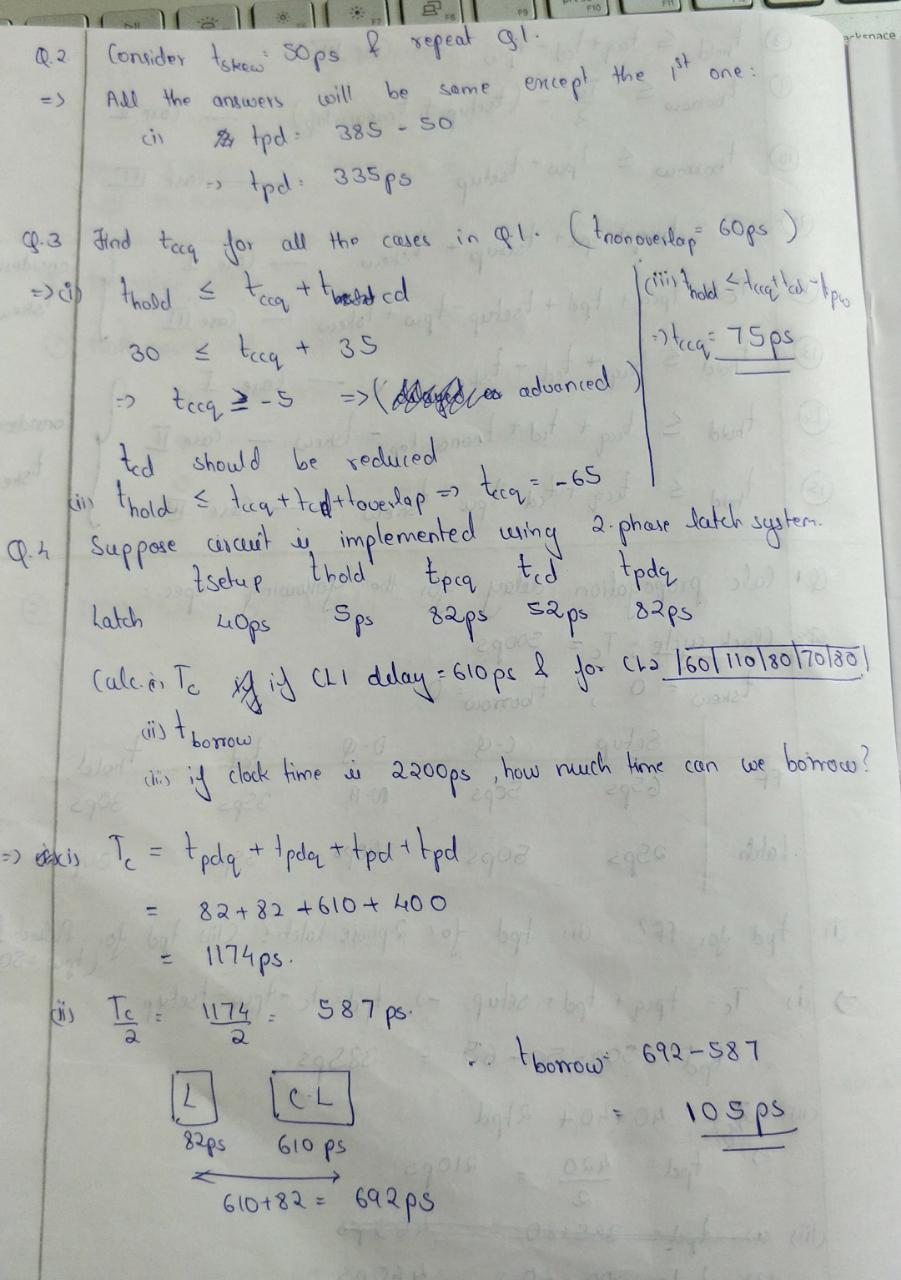 Q.2 Consider tskew = 50ps & repeat Q1.
=> All the answers will be same except the 1st one:
(i) tpd = 385 - 50
=> tpd = 335ps
Q.3 Find tccq for all the cases in Q1. (tnonoverlap = 60ps)
=> (i) thold ≤ tccq + tcd
30 ≤ tccq + 35
=> tccq ≥ -5 => ( advanced )
tcd should be reduced
(iii) thold ≤ tccq + tcd - tpw
=> tccq = 75ps
(ii) thold ≤ tccq + tcd + toverlap => tccq = -65
Q.4 Suppose circuit is implemented using 2-phase latch system.
tsetup thold tpcq tcd tpdq
Latch 40ps 5ps 82ps 52ps 82ps
Calc. (i) Tc if CL1 delay = 610ps & for CL2 |60|110|80|70|80|
(ii) tborrow
(iii) if clock time is 2200ps, how much time can we borrow?
=> (i) Tc = tpdq + tpdq + tpd + tpd
= 82 + 82 + 610 + 400
= 1174ps.
(ii) Tc/2 = 1174/2 = 587 ps.
∴ tborrow = 692 - 587
= 105 ps
L C.L
82ps 610 ps
610+82 = 692ps